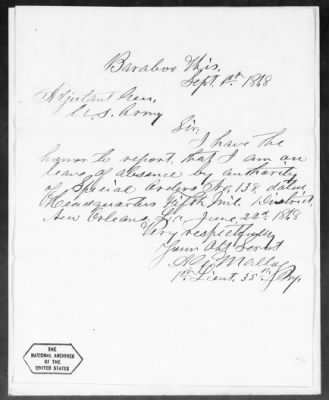 Baraboo Wis.
Sept. 1st 1868
Adjutant Gen.
U.S. Army
Sir,
I have the
honor to report, that I am on
leave of absence by authority
of Special Orders No. 138, dated
Headquarters Fifth Mil. District,
New Orleans, La. June 22d 1868
Very respectfully
Your Obt Servt
1st Lieut. 35th Inf.
THE
NATIONAL ARCHIVES
OF THE
UNITED STATES